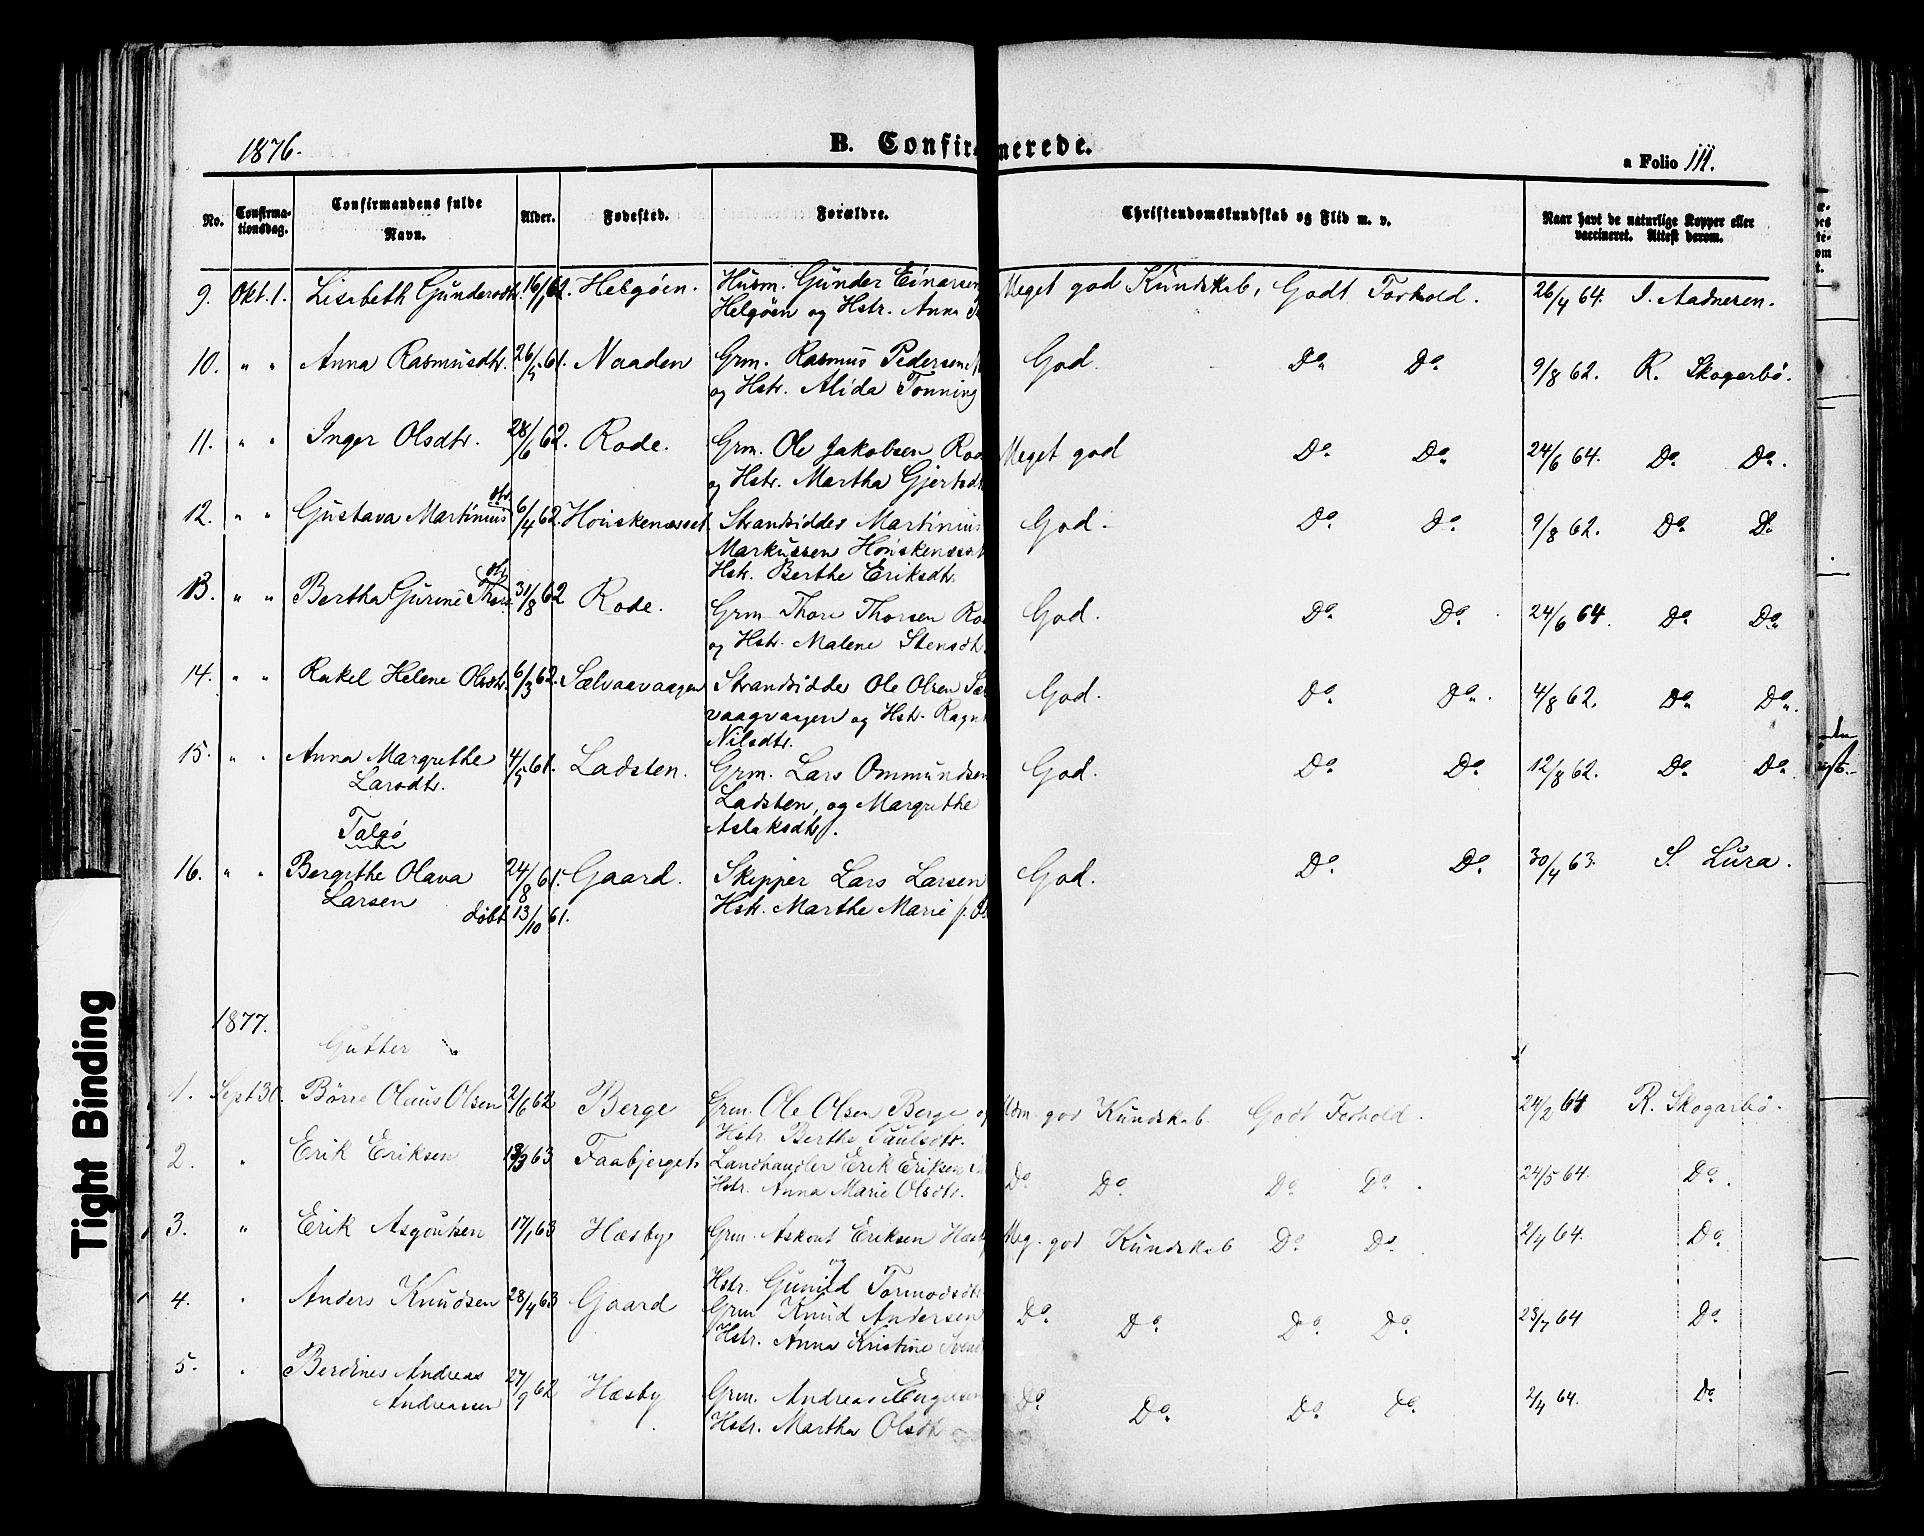 1876.
B. Confirmerede.
a Folio 111.
No.
Confirma-
tionsdag.
Confirmandens fulde
Navn.
Alder.
Fødested.
Forældre.
Christendomskundskab og Flid m. v.
Naar havt de naturlige Kopper eller
vaccineret. Attest derom.
9. Okt. 1. Lisebeth Gundersdtr. 16/1 62. Helgöen. Husm. Gunder Einarsen Meget god Kundskab, Godt Forhold. 26/4 64. J. Aadnesen.
Helgöen og Hstr. Anna
10. " " Anna Rasmusdtr. 26/5 61. Naaden Grm. Rasmus Pedersen God. Do Do 9/8 62. R. Skogerbö.
og Hstr. Alida Tonning
11. " " Inger Olsdtr. 28/6 62. Rode. Grm. Ole Jakobsen Rod Meget god Do. Do. 24/6 64. Do. Do.
og Hstr. Martha Gjertsdt
12. " " Gustava Martinius dtr 6/4 62. Honskenæsset. Strandsidder Martinius God. Do. Do. 9/8 62. Do. Do
Markussen Honskenæsset
Hstr. Berthe Eriksdtr
13. " " Bertha Gurine Thors dtr 31/8 62 Rode. Grm Thore Thorsen Ro God. Do. Do. 24/6 64. Do. Do.
og Hstr. Malene Stensdtr
14. " " Rakel Helene Olsdtr. 6/3 62. Sælvaavaagen Strandsidder Ole Olsen Sæl God. Do. Do. 4/8 62. Do. Do.
vaagvaagen og Hstr. Ragn
Nilsdtr.
15. " " Anna Margrethe 4/5 61. Ladsten. Grm. Lars Ommundsen God. Do. Do. 12/8 62. Do. Do.
Larsdtr. Ladsten, og Margrethe
Aslaksdtr.
Talgö
16. " " Bergithe Olava 24/8 61. Gaard. Skipper Lars Larsen God. Do. Do. 30/4 63. S. Lura.
Larsen Hstr. Marthe Marie f.
döbt 13/10 61.
1877.
Gutter
1. Sept 30. Börre Olaus Olsen 2/6 62 Berge Grm. Ole Olsen Berge og Udm. god Kundskab. Godt Forhold. 24/2 64 R. Skogarbö.
Hstr. Berthe Paulsdtr.
2. " Erik Eriksen 63 Faabjerget Landhandler Erik Eriksen Do. Do. Do. Do. 24/5 64. Do.
Hstr. Anna Marie Olsdtr.
3. " Erik Asgoutsen 17/1 63 Hæsby Grm. Askout Eriksen Hæsby Meg. god Kundskab Do. Do. 2/4 64. Do.
og
Hstr. Gunild Tormodsdtr
4. " Anders Knudsen 28/4 63 Gaard Grm Knud Andersen Do. Do. Do. Do. 23/7 64 Do.
Hstr. Anna Kristine Svend
5. " Berdines Andreas 27/9 62 Hæsby Grm. Andreas Do. Do. Do. Do. 2/4 64. Do.
Andreassen Hstr. Martha Olsdtr
Tight Binding